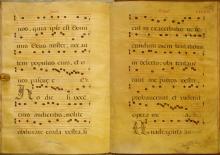 nos, quia ipse est Domi
nus Deus noster, nos au
tem populus eius, et o
ves pascue e
Hodie si voce
eius audieritis, nolite
obdurare corda vestra, si
cut in exacerbatione se
cundum diem tentationis
in deserto, ubi tentave
runt me patres vestri,
probaverunt et viderunt
opera me a
Quadraginta an